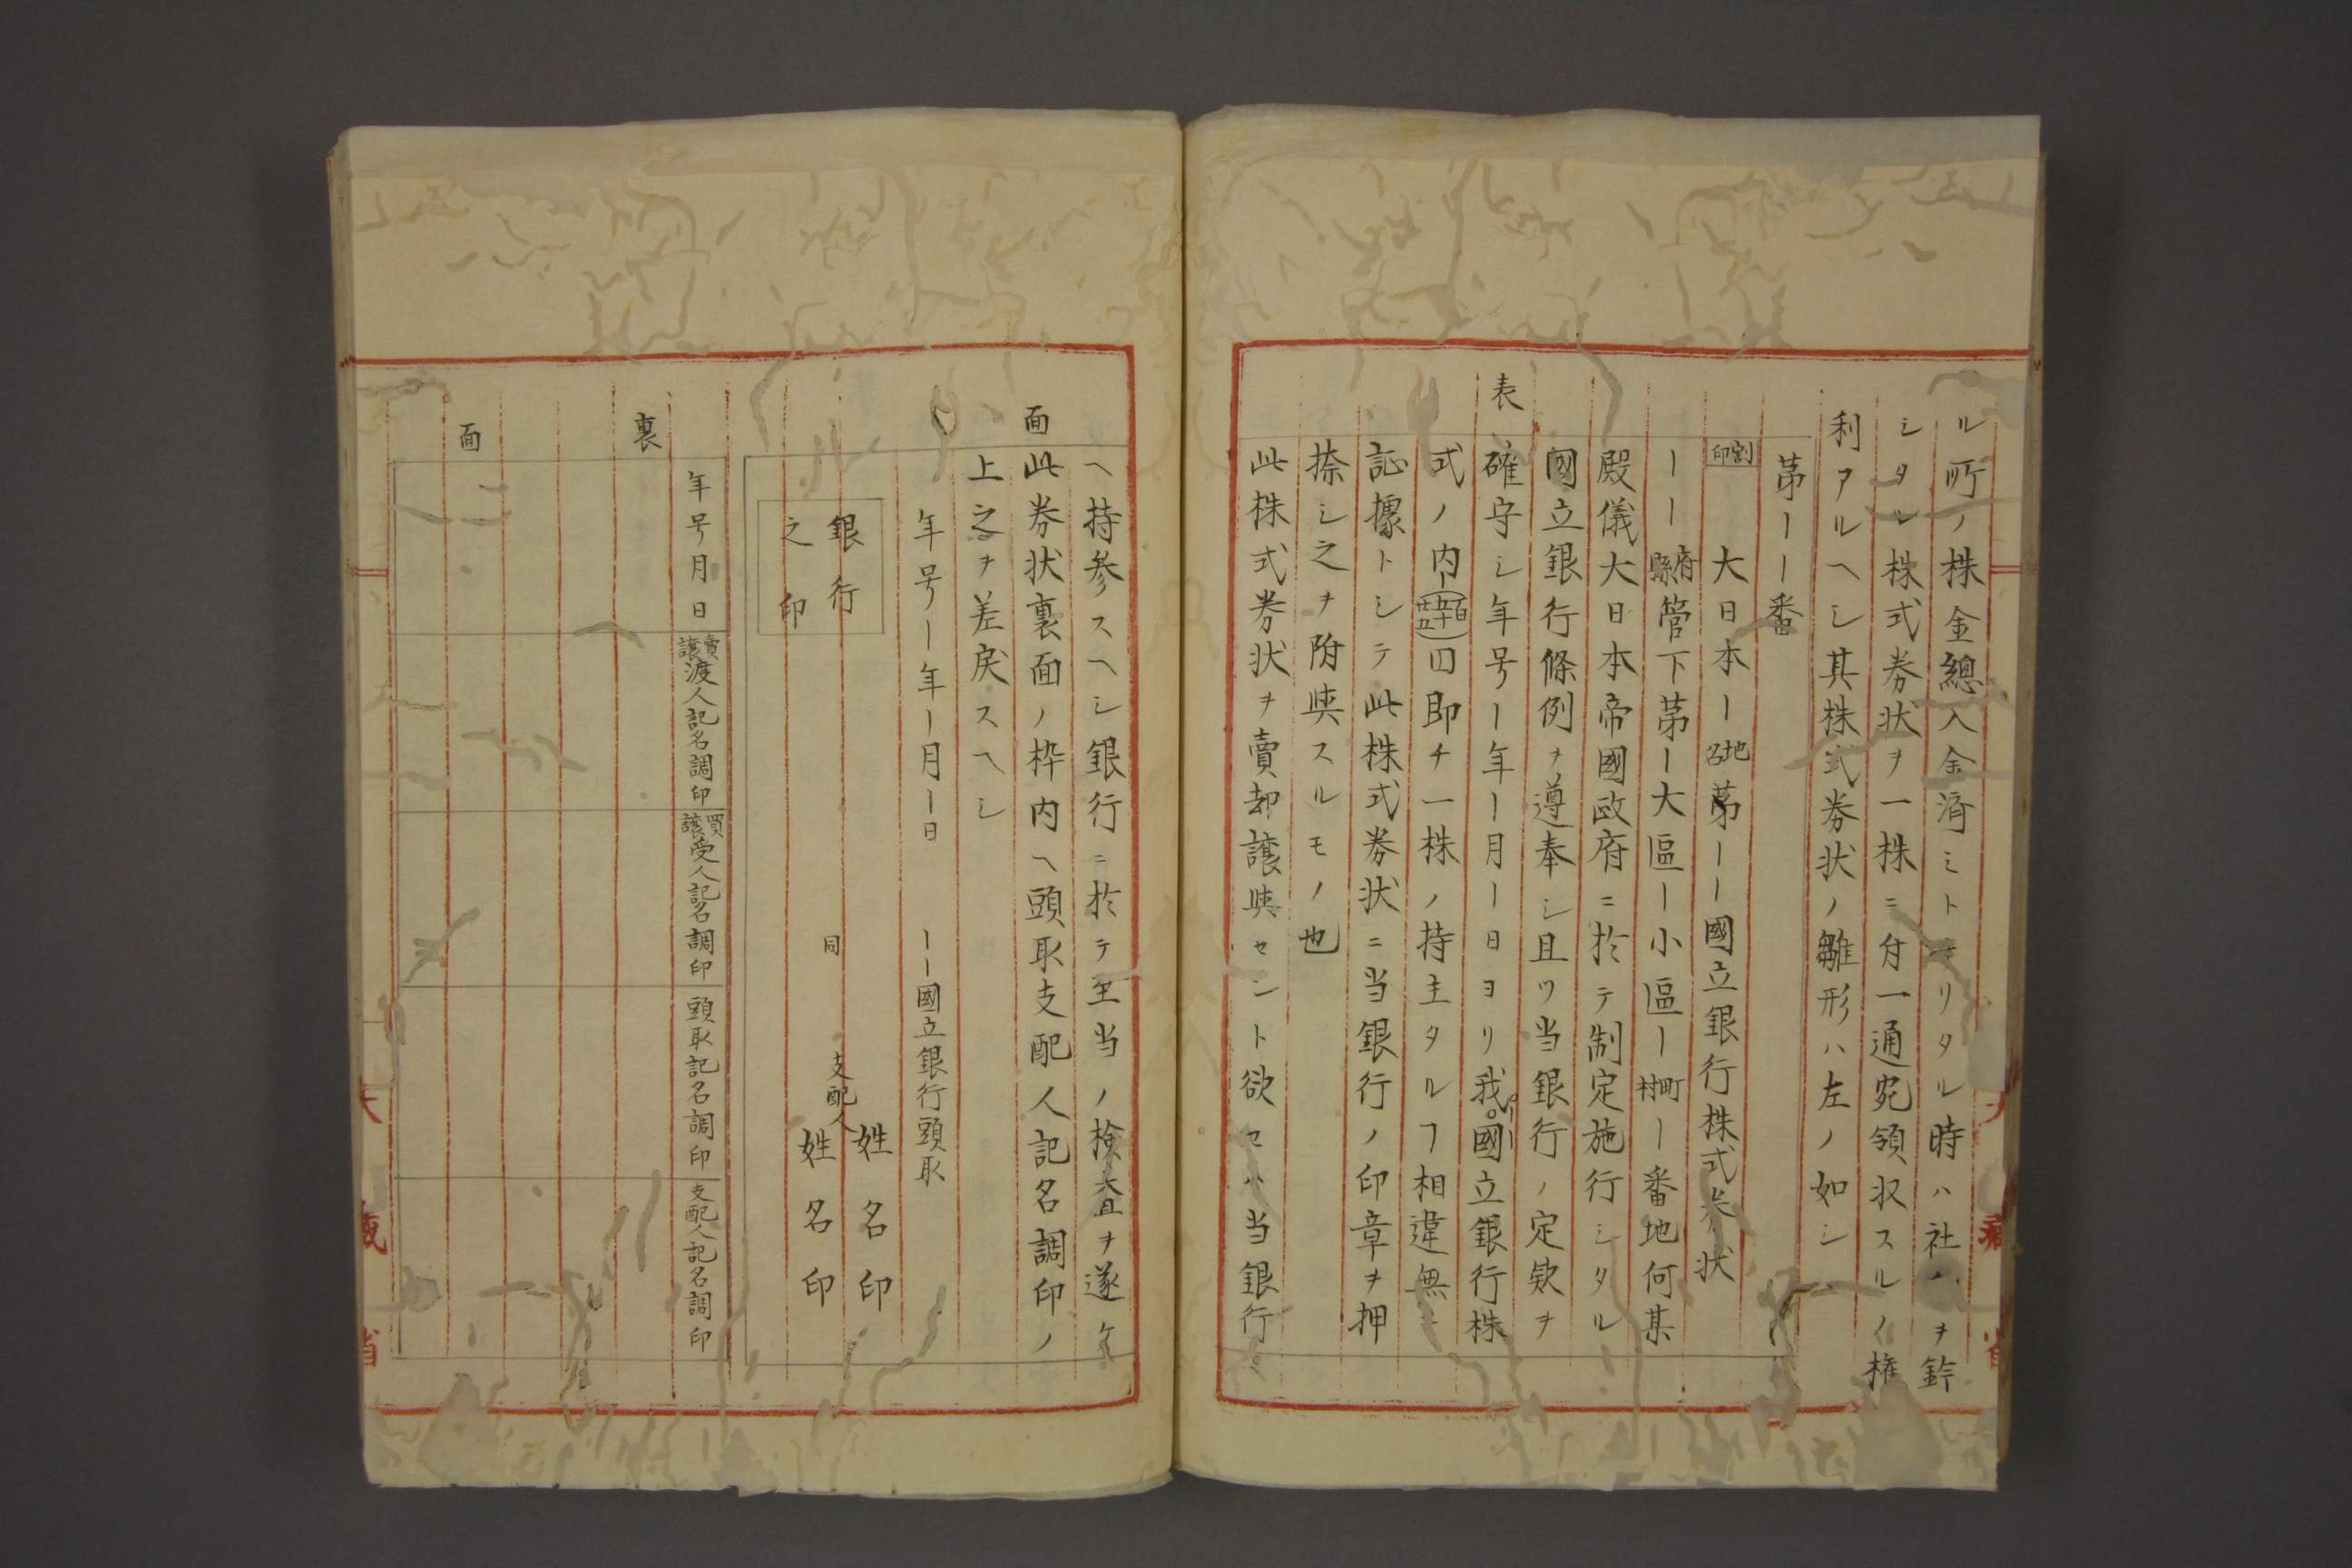 ル所ノ株金總入金済ミトナリタル時ハ社ハヲ鈴
シタル株式券状ヲ一株ニ付一通宛領収スルノ権
利アルヘシ其株式券状ノ雛形ハ左ノ如シ
第ーー番
表
割印
大日本ー地名第ーー國立銀行株式券状
ーー府縣管下第ー大區ー小區ー町村ー番地何某
殿儀大日本帝國政府ニ於テ制定施行シタル
國立銀行條例ヲ遵奉シ且ツ当銀行ノ定欵ヲ
確守シ年号ー年ー月ー日ヨリ我ーー國立銀行株
式ノ内ー(百五十廿五)円即チ一株ノ持主タルヿ相違無
証據トシテ此株式券状ニ当銀行ノ印章ヲ押
捺シ之ヲ附與スルモノ也
此株式券状ヲ賣却譲與セント欲セハ当銀行
面
ヘ持参スヘシ銀行ニ於テ至当ノ檢査ヲ遂ケ
此券状裏面ノ枠内ヘ頭取支配人記名調印ノ
上之ヲ差戻スヘシ
年号ー年ー月ー日
ーー國立銀行頭取
姓名印
同
支配人
姓名印
銀行
之印
裏
面
年号月日
賣譲渡人記名調印
買譲受人記名調印
頭取記名調印
支配人記名調印
大藏省
大藏省